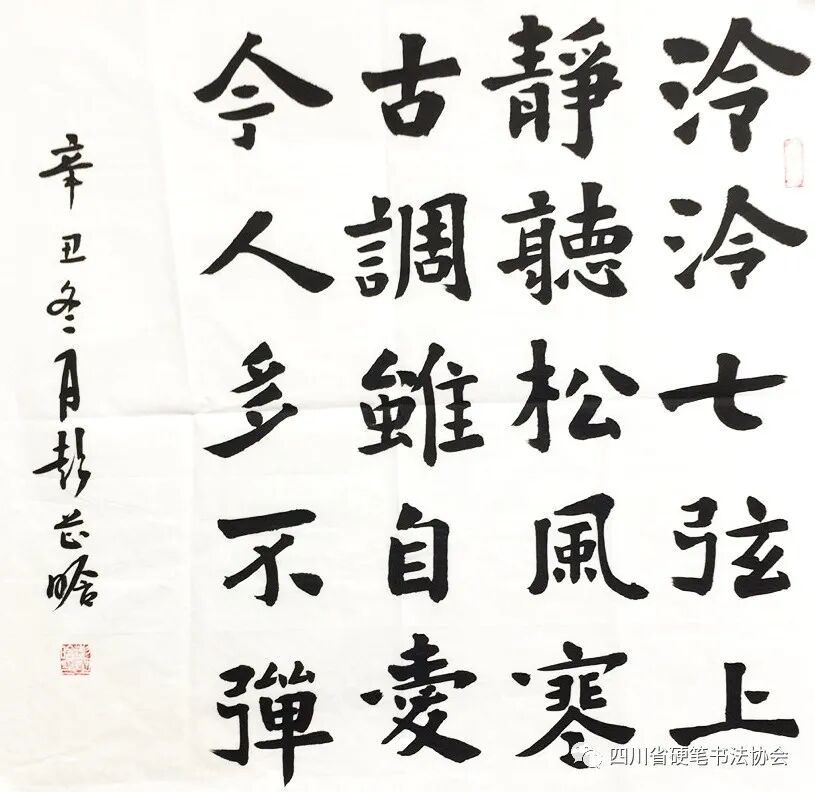 泠泠七弦上
靜聽松風寒
古調雖自愛
今人多不彈
辛丑冬月彭芷晗
四川省硬笔书法协会